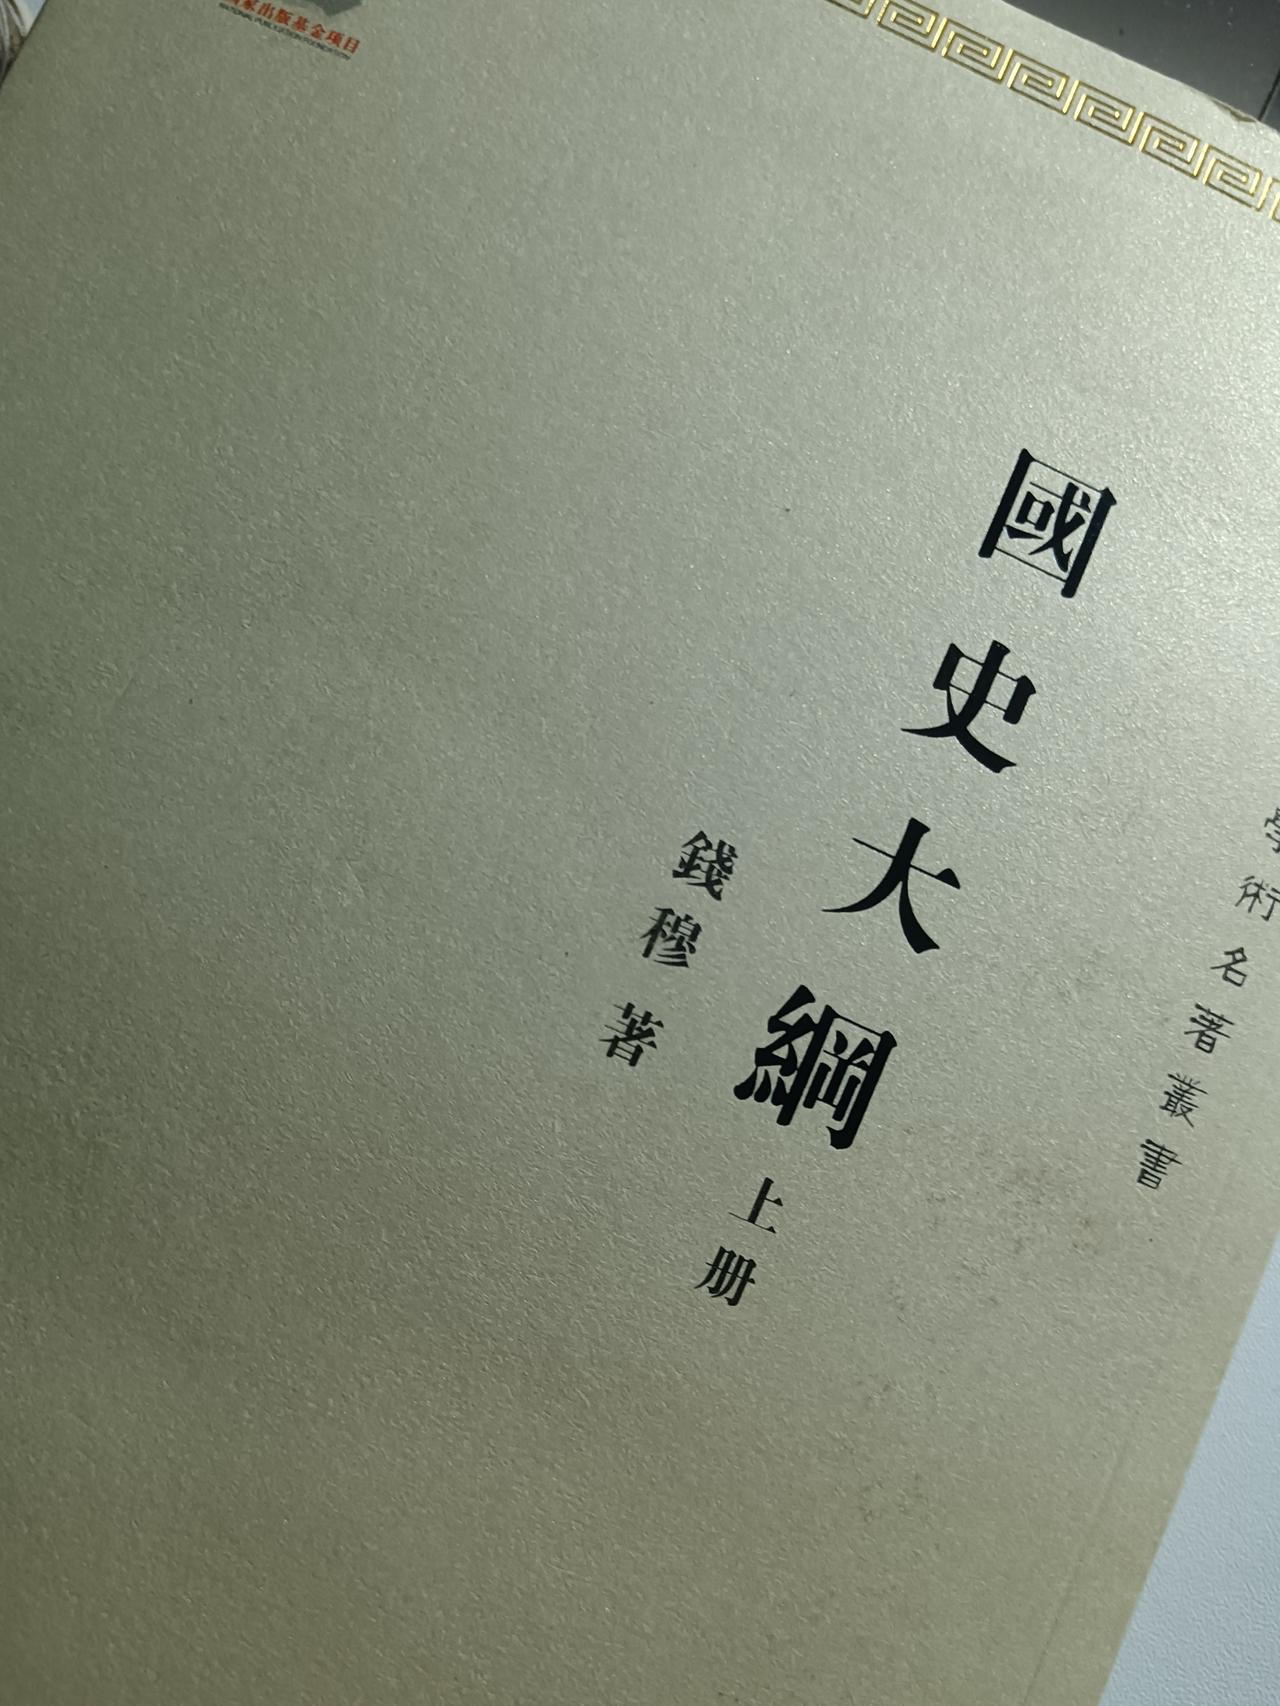 家出版基金项目
NATIONAL PUBLICATION FOUNDATION
學術名著叢書
國史大綱 上册
錢穆 著